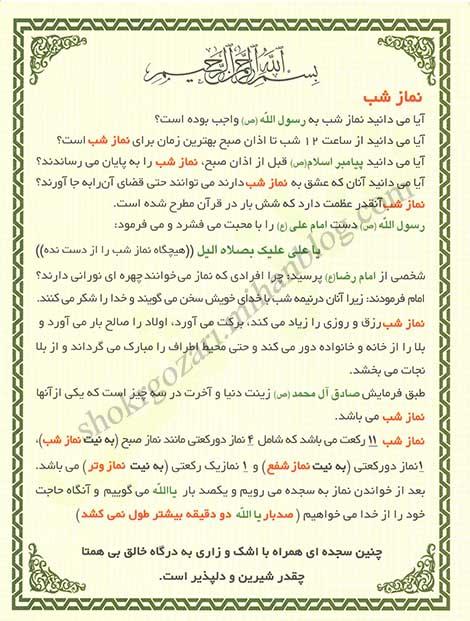 بسم الله الرحمن الرحیم
نماز شب
آیا می دانید نماز شب به رسول الله (ص) واجب بوده است؟
آیا می دانید از ساعت ۱۲ شب تا اذان صبح بهترین زمان برای نماز شب است؟
آیا می دانید پیامبر اسلام(ص) قبل از اذان صبح، نماز شب را به پایان می رساندند؟
آیا می دانید آنان که عشق به نماز شب دارند می توانند حتی قضای آن رابه جا آورند؟
نماز شب آنقدر عظمت دارد که شش بار در قرآن مطرح شده است.
رسول الله (ص) دست امام علی (ع) را با محبت می فشرد و می فرمود:
یا علی علیک بصلاه الیل ((هیچگاه نماز شب را از دست نده))
شخصی از امام رضا(ع) پرسید: چرا افرادی که نماز می خوانند چهره ای نورانی دارند؟
امام فرمودند: زیرا آنان درنیمه شب با خدای خویش سخن می گویند و خدا را شکر می کنند.
نماز شب رزق و روزی را زیاد می کند، برکت می آورد، اولاد را صالح بار می آورد و
بلا را از خانه و خانواده دور می کند و حتی محیط اطراف را مبارک می گرداند و از بلا
نجات می بخشد.
طبق فرمایش صادق آل محمد (ص) زینت دنیا و آخرت در سه چیز است که یکی ازآنها
نماز شب می باشد.
نماز شب ۱۱ رکعت می باشد که شامل ۴ نماز دورکعتی مانند نماز صبح (به نیت نماز شب)،
۱ نماز دورکعتی (به نیت نماز شفع) و ۱ نمازیک رکعتی (به نیت نماز وتر) می باشد.
بعد از خواندن نماز به سجده می رویم و یکصد بار یاالله می گوییم و آنگاه حاجت
خود را از خدا می خواهیم (صدبار یا الله دو دقیقه بیشتر طول نمی کشد)
چنین سجده ای همراه با اشک و زاری به درگاه خالق بی همتا
چقدر شیرین و دلپذیر است.
shokrgozari.mihanblog.com